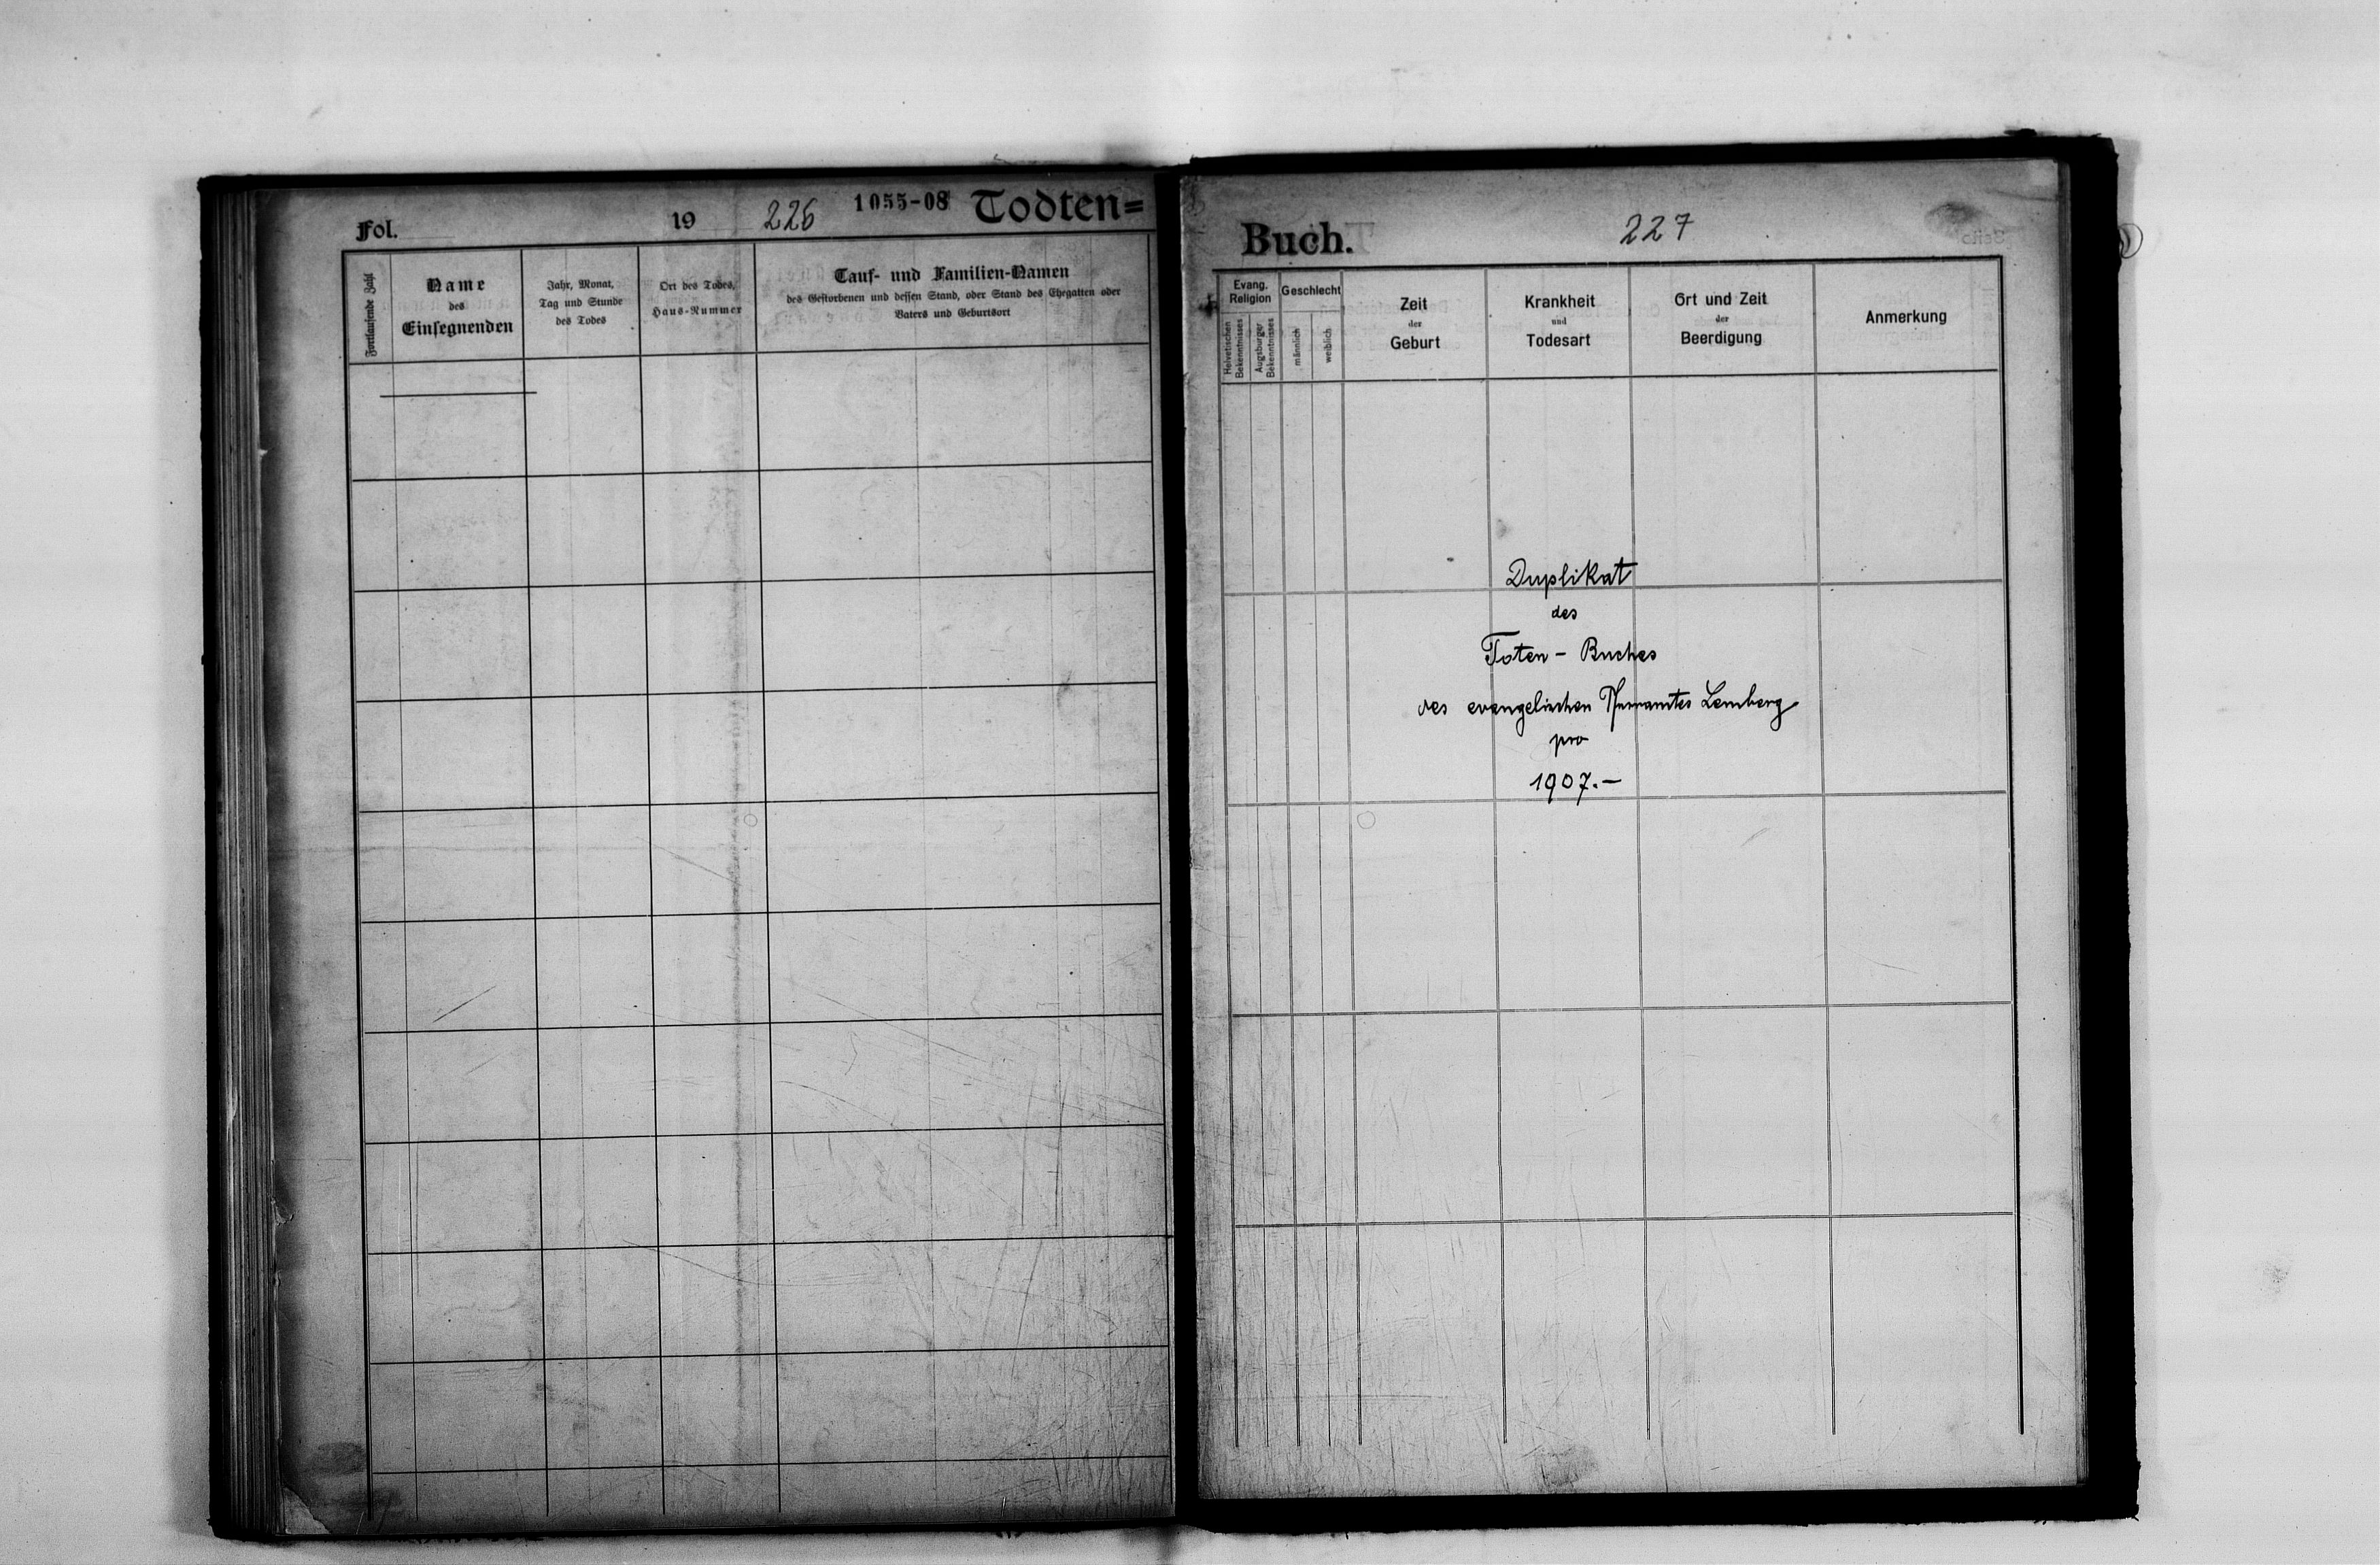 Fol.
19
226
1055-08
Todten=
Fortlaufende Zahl
Name
des
Einsegnenden
Jahr, Monat,
Tag und Stunde
des Todes
Ort des Todes,
Haus-Nummer
Tauf- und Familien-Namen
des Gestorbenen und dessen Stand, oder Stand des Ehegatten oder
Vaters und Geburtsort
Buch.
227
Evang.
Religion
Helvetischen
Bekenntnisses
Augsburger
Bekenntnisses
Geschlecht
männlich
weiblich
Zeit
der
Geburt
Krankheit
und
Todesart
Ort und Zeit
der
Beerdigung
Anmerkung
Duplikat
des
Toten - Buches
des evangelischen Pfarramtes Lemberg
pro
1907.-